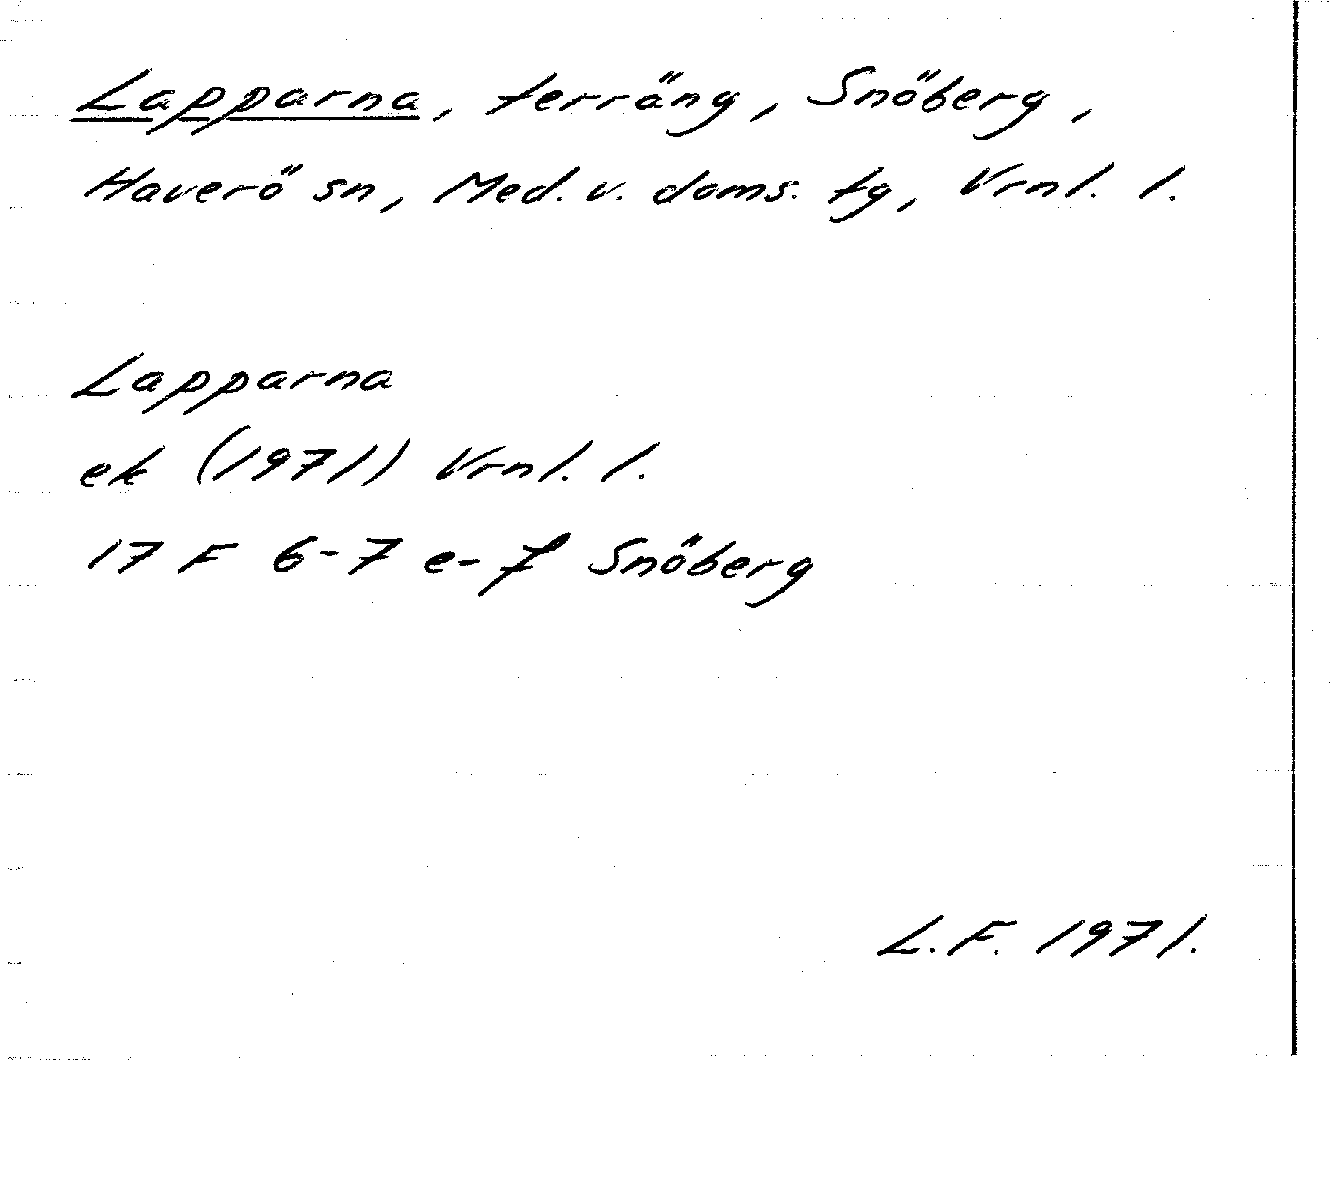 Lapparna, terräng, Snöberg,
Haverö sn, Med. v. doms. tg, Vrnl. l.
Lapparna
ek (1971) Vrnl. l.
17 F 6-7 e-f Snöberg
L.F. 1971.